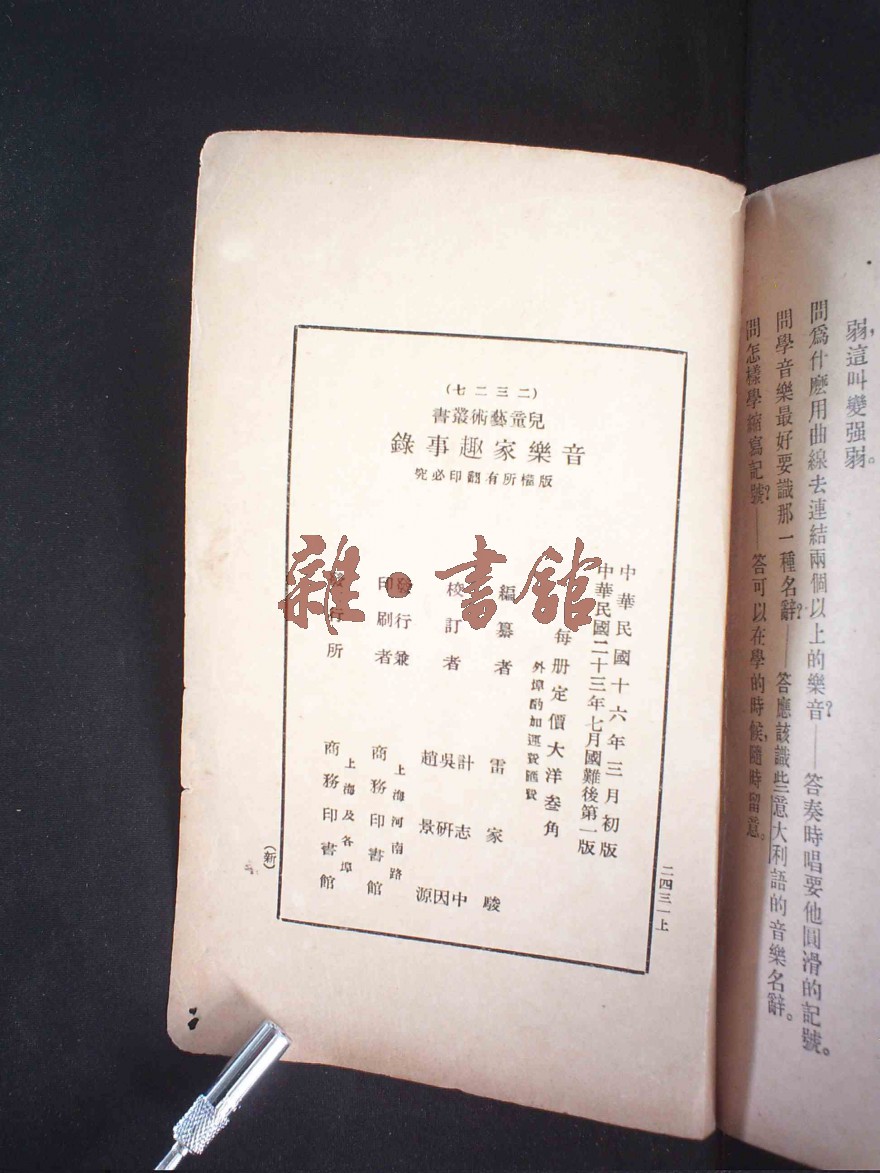 弱,這叫變强弱。
問爲什麽用曲線去連結兩個以上的樂音?——答奏時唱要他圓滑的記號。
問學音樂最好要識那一種名辭?——答應該識些意大利語的音樂名辭。
問怎樣學縮寫記號?——答可以在學的時候,隨時留意。
(二三二七)
兒童藝術叢書
音樂家趣事錄
版權所有翻印必究
中華民國十六年三月初版
中華民國二十三年七月國難後第一版
每册定價大洋叁角
外埠酌加運費匯費
編纂者 雷家駿
校訂者 計志中 吳研因 趙景源
發行兼印刷者 上海河南路 商務印書館
發行所 上海及各埠 商務印書館
二四三一上
(新)
雜·書館